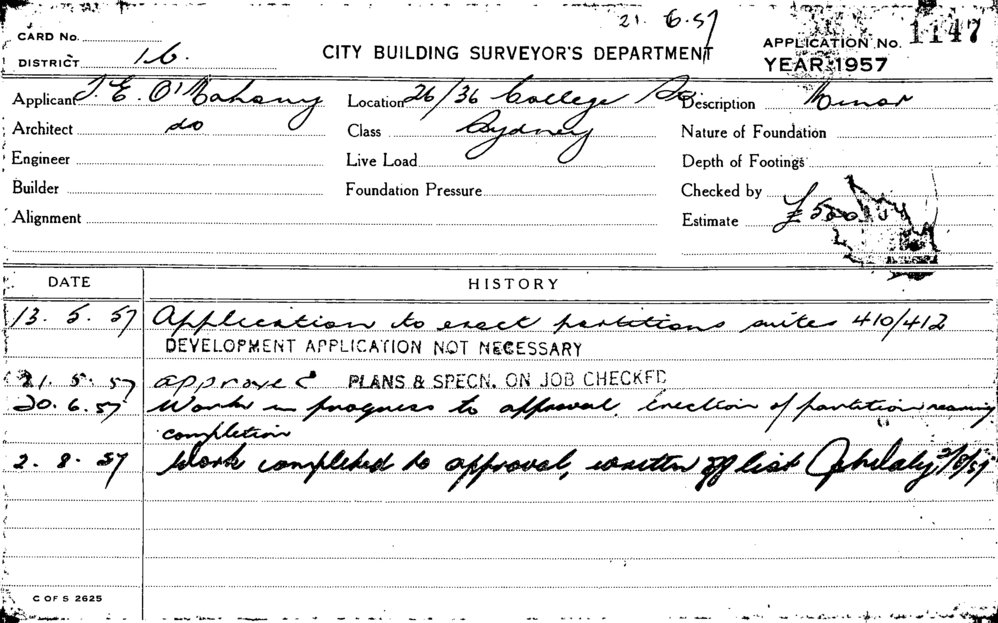 21. 6.57
CARD No.
DISTRICT 16.
CITY BUILDING SURVEYOR'S DEPARTMENT
APPLICATION No. 1147
YEAR 1957
Applicant J. E. O'Mahony Location 26/36 College St. Description Minor
Architect do Class Sydney Nature of Foundation
Engineer Live Load Depth of Footings
Builder Foundation Pressure Checked by
Alignment Estimate £500
DATE HISTORY
13. 5. 57 Application to erect partitions suites 410/412
DEVELOPMENT APPLICATION NOT NECESSARY
21. 5. 57 approved PLANS & SPECN. ON JOB CHECKED
20. 6. 57 Work in progress to approval, erection of partition nearing
completion
2. 8. 57 Work completed to approval, written off list 2/8/57
C OF S 2625